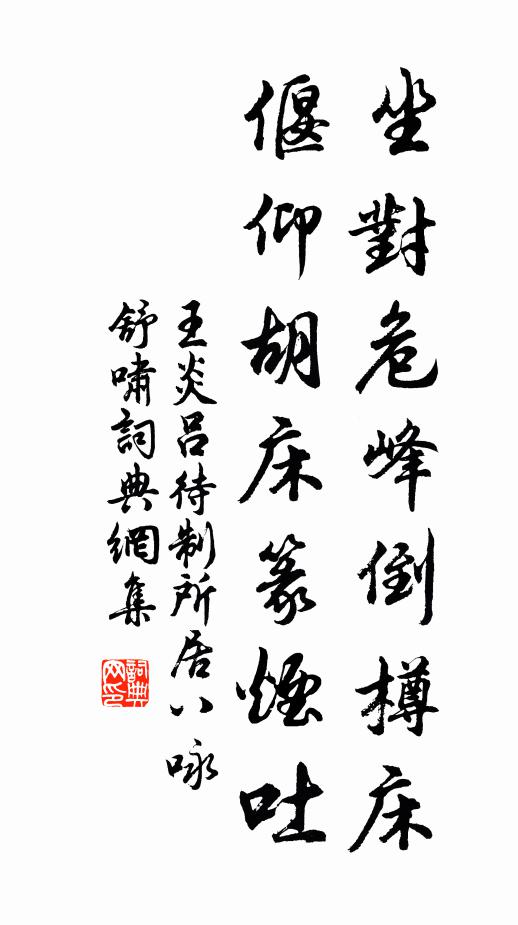 坐對危峰倒樽床
偃仰胡床篆煙吐
王炎呂待制所居八咏
舒嘯詞典網集
詞典网印